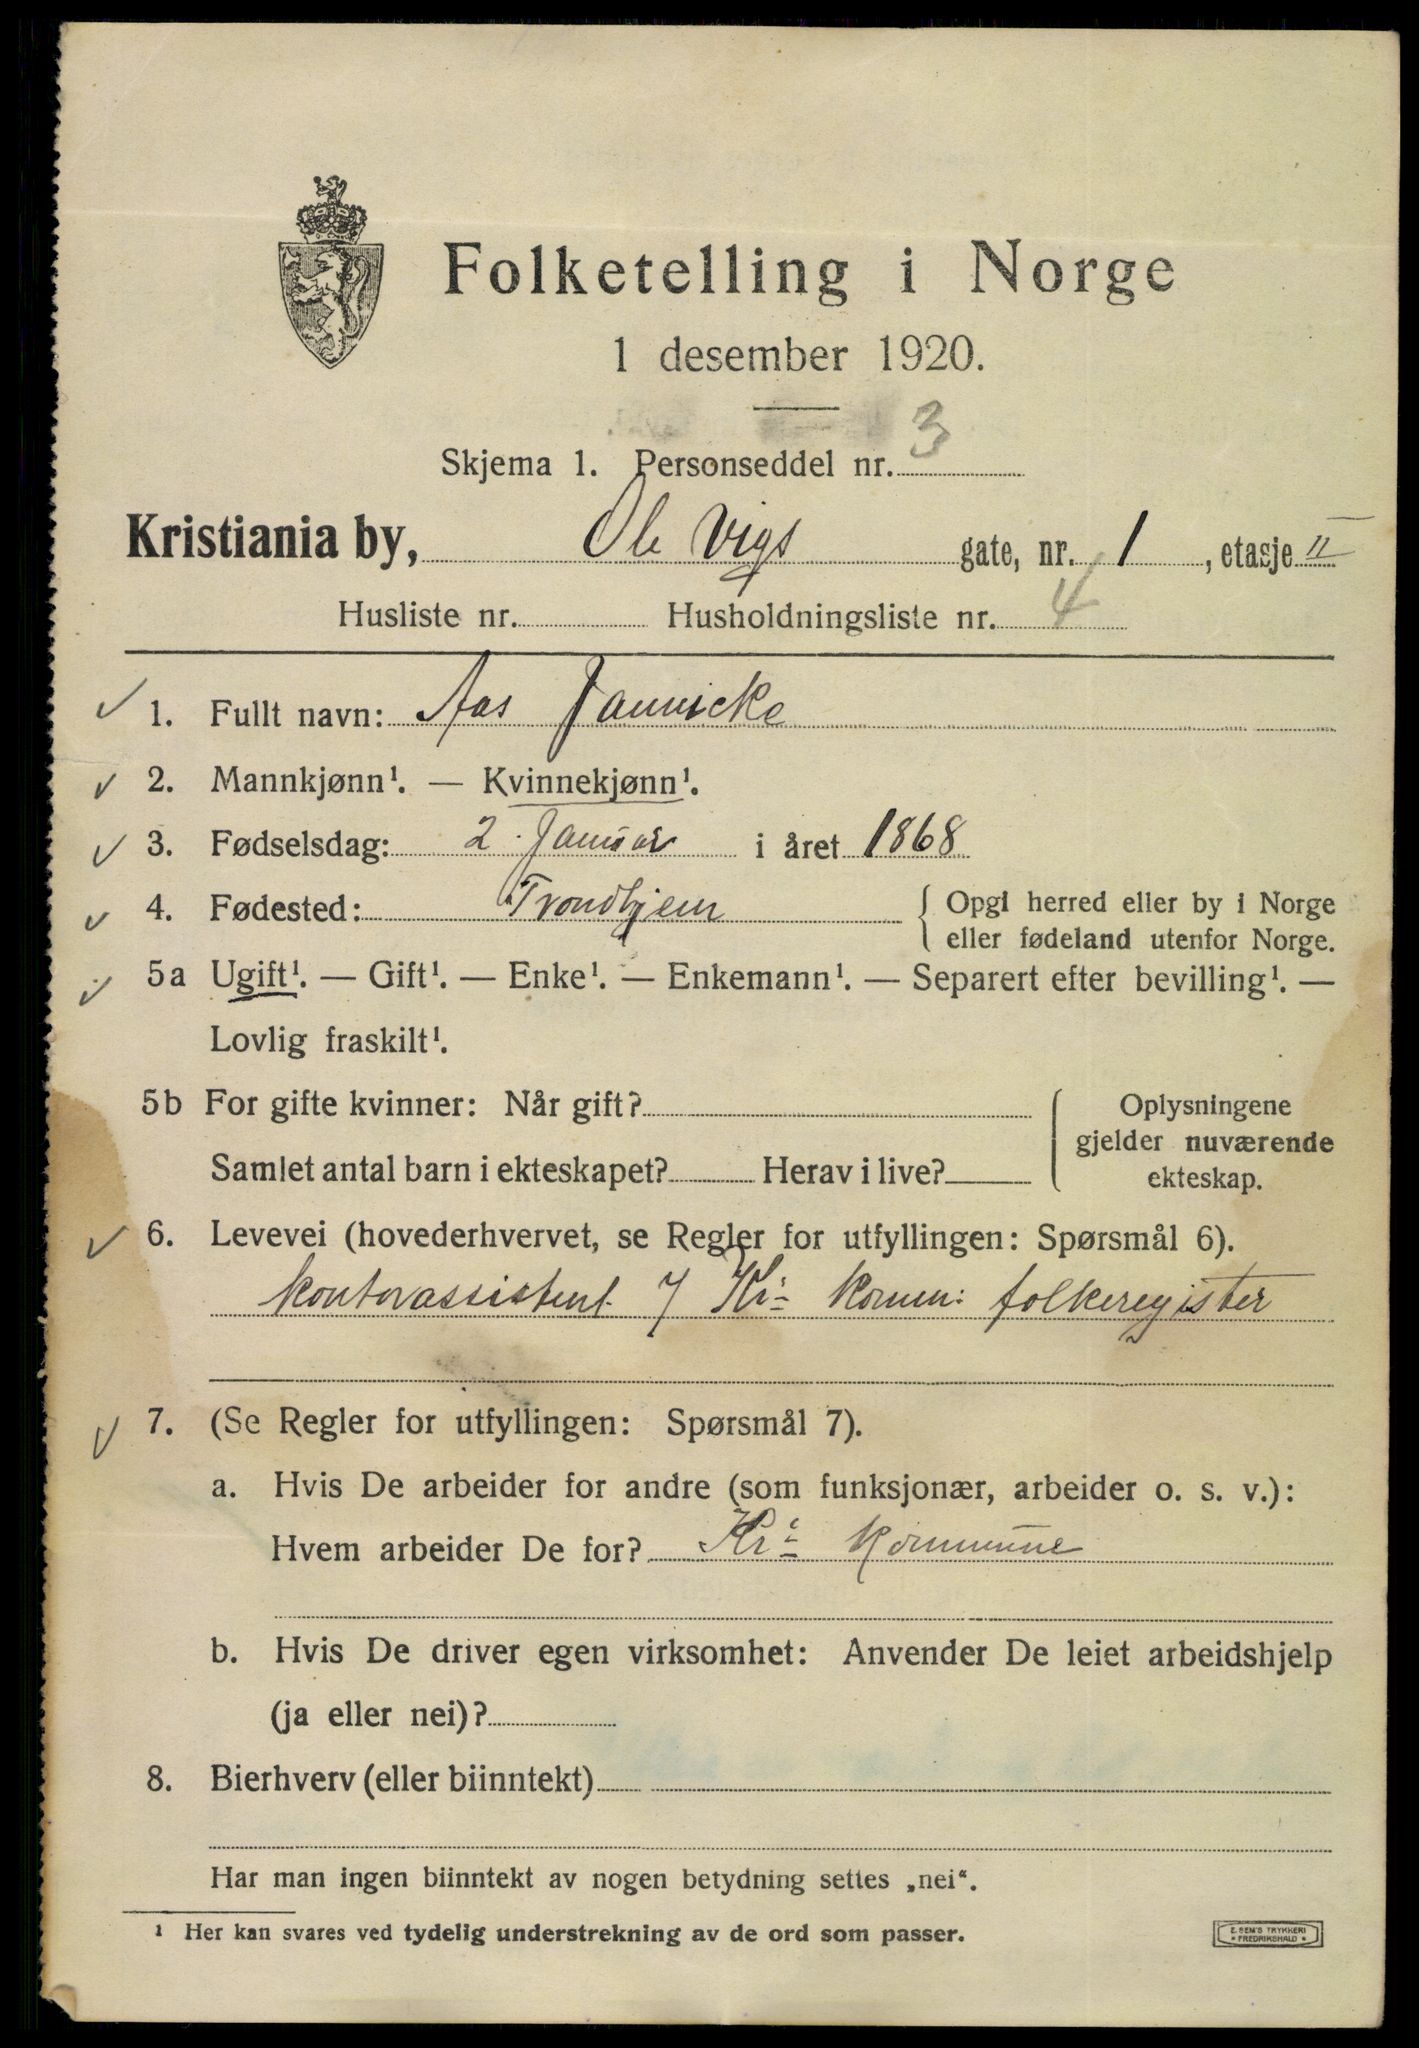 Folketelling i Norge
1 desember 1920.
Skjema 1. Personseddel nr. 3
Kristiania by, Ole Vigs gate, nr. 1, etasje II
Husliste nr. Husholdningsliste nr. 4
1. Fullt navn: Aas Jannicke
2. Mannkjønn¹. — Kvinnekjønn¹.
3. Fødselsdag: 2. Januar i året 1868
4. Fødested: Trondhjem { Opgi herred eller by i Norge
eller fødeland utenfor Norge.
5a Ugift¹. — Gift¹. — Enke¹. — Enkemann¹. — Separert efter bevilling¹. —
Lovlig fraskilt¹.
5b For gifte kvinner: Når gift? { Oplysningene
gjelder nuværende
Samlet antal barn i ekteskapet? Herav i live? ekteskap.
6. Levevei (hovederhvervet, se Regler for utfyllingen: Spørsmål 6).
kontorassistent i Kr.a komm: folkeregister
7. (Se Regler for utfyllingen: Spørsmål 7).
a. Hvis De arbeider for andre (som funksjonær, arbeider o. s. v.):
Hvem arbeider De for? Kr.a Kommune
b. Hvis De driver egen virksomhet: Anvender De leiet arbeidshjelp
(ja eller nei)?
8. Bierhverv (eller biinntekt)
Har man ingen biinntekt av nogen betydning settes „nei“.
¹ Her kan svares ved tydelig understrekning av de ord som passer.
E. SEM'S TRYKKERI
* FREDRIKSHALD *